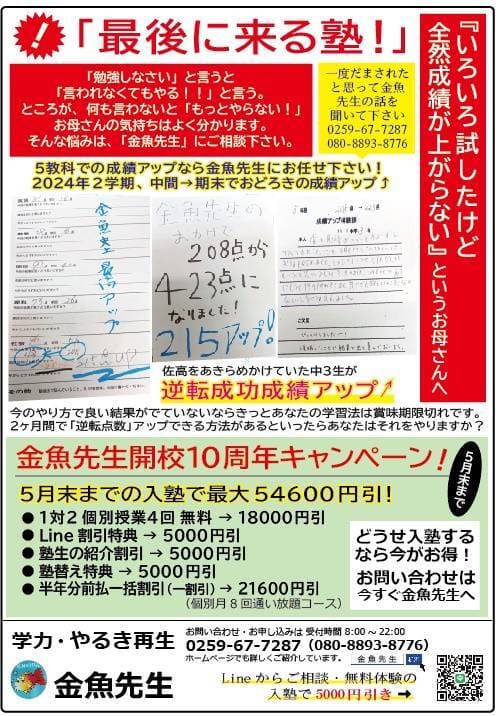 「最後に来る塾!」
『いろいろ試したけど
全然成績が上がらない』というお母さんへ
「勉強しなさい」と言うと
「言われなくてもやる!!」と言う。
ところが、何も言わないと「もっとやらない!」
お母さんの気持ちはよく分かります。
そんな悩みは、「金魚先生」にご相談下さい。
一度だまされた
と思って金魚
先生の話を
聞いて下さい
0259-67-7287
080-8893-8776
5教科での成績アップなら金魚先生にお任せ下さい!
2024年2学期、中間→期末でおどろきの成績アップ⤴
金魚先生のおかげで
208点が
423点に
なりました!
215アップ!
佐高をあきらめかけていた中3生が
逆転成功成績アップ↗
今のやり方で良い結果がでていないならきっとあなたの学習法は賞味期限切れです。
2ヶ月間で「逆転点数」アップできる方法があるといったらあなたはそれをやりますか?
金魚先生開校10周年キャンペーン!
5月末まで
5月末までの入塾で最大54600円引!
● 1対2個別授業4回 無料 → 18000円引
● Line 割引特典 → 5000円引
● 塾生の紹介割引 → 5000円引
● 塾替え特典 → 5000円引
● 半年分前払一括割引(一割引) → 21600円引
(個別月8回通い放題コース)
どうせ入塾する
なら今がお得!
お問い合わせは
今すぐ金魚先生へ
学力・やるき再生
金魚先生
お問い合わせ・お申し込みは 受付時間 8:00 ~ 22:00
0259-67-7287 (080-8893-8776)
ホームページでも詳しくご紹介しています。
金魚先生
Lineからご相談・無料体験の
入塾で5000円引き →